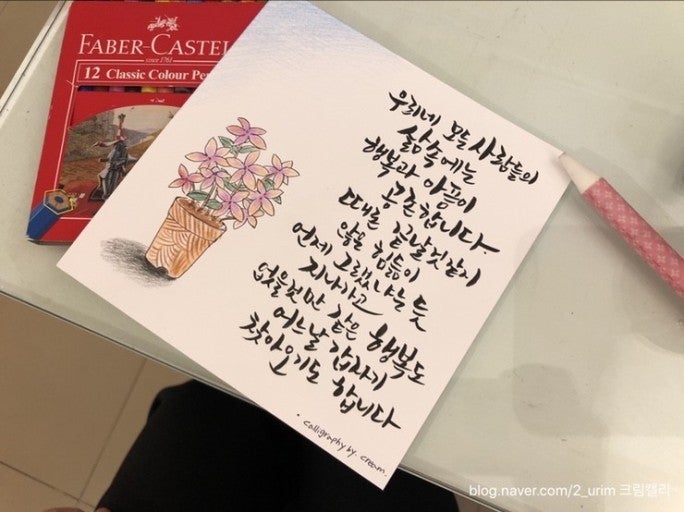 FABER-CASTEL
since 1761
12 Classic Colour Pen
우리네 모든 사람들의
삶 속에는
행복과 아픔이
공존합니다.
때론 끝날것 같지
않을 힘듦이
언제 그랬냐는 듯
지나가고
없을것만 같은 행복도
어느날 갑자기
찾아오기도 합니다
calligraphy by. cream.
blog.naver.com/2_urim 크림캘리